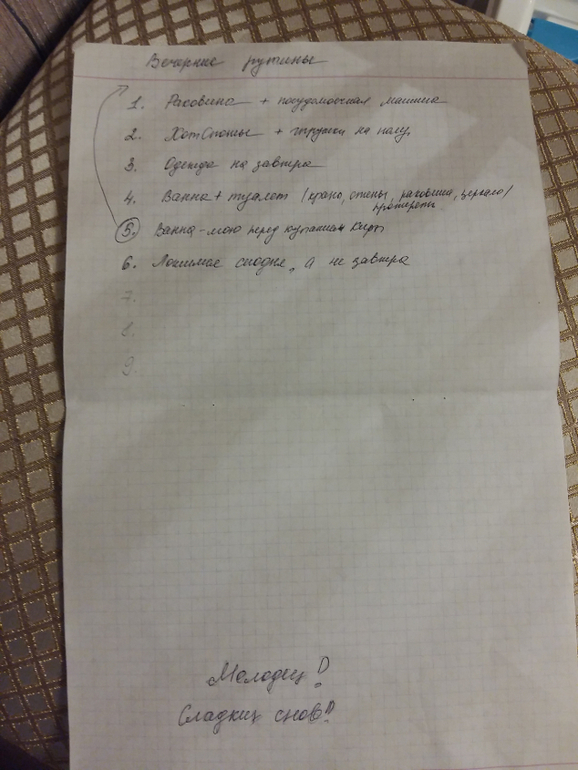 Вечерние рутины
1. Раковина + посудомоечная машина
2. ХотСпоты + игрушки на полу
3. Одежда на завтра
4. Ванна + туалет /кран, стены, раковина, зеркало/
протереть
5. Ванна - мою перед купанием
6. Ложимся сегодня, а не завтра
7.
8.
9.
Молодец!
Сладких снов!!